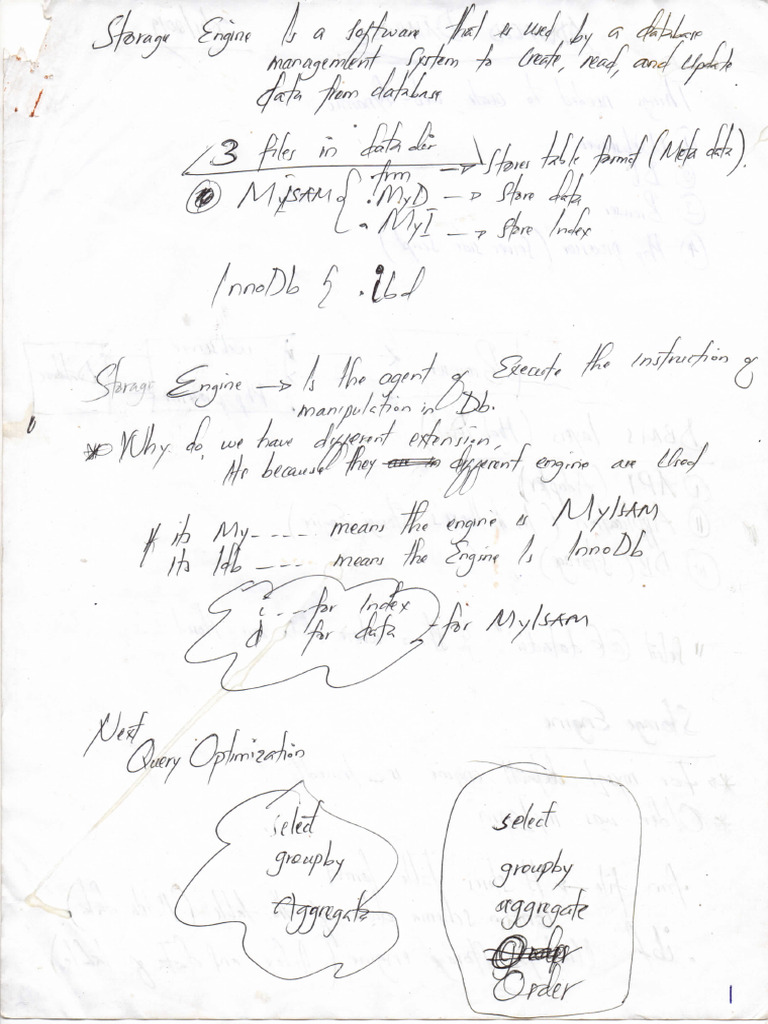 Storage Engine Is a software that is used by a database
management system to create, read, and update
data from database
3 files in data dir
.frm --> Stores table format (Meta data).
MyISAM { .MyD --> Store data
.MyI --> Store Index
InnoDb { .ibd
Storage Engine --> Is the agent of Execute the instruction of
manipulation in Db.
* Why do we have different extension,
Its because they different engine are Used
its My---- means the engine is MyISAM
its Idb ---- means the Engine Is InnoDb
i --- for Index
d for data - for MyISAM
Next
Query Optimization
select
groupby
Aggregate
select
groupby
aggregate
Order
Order
1